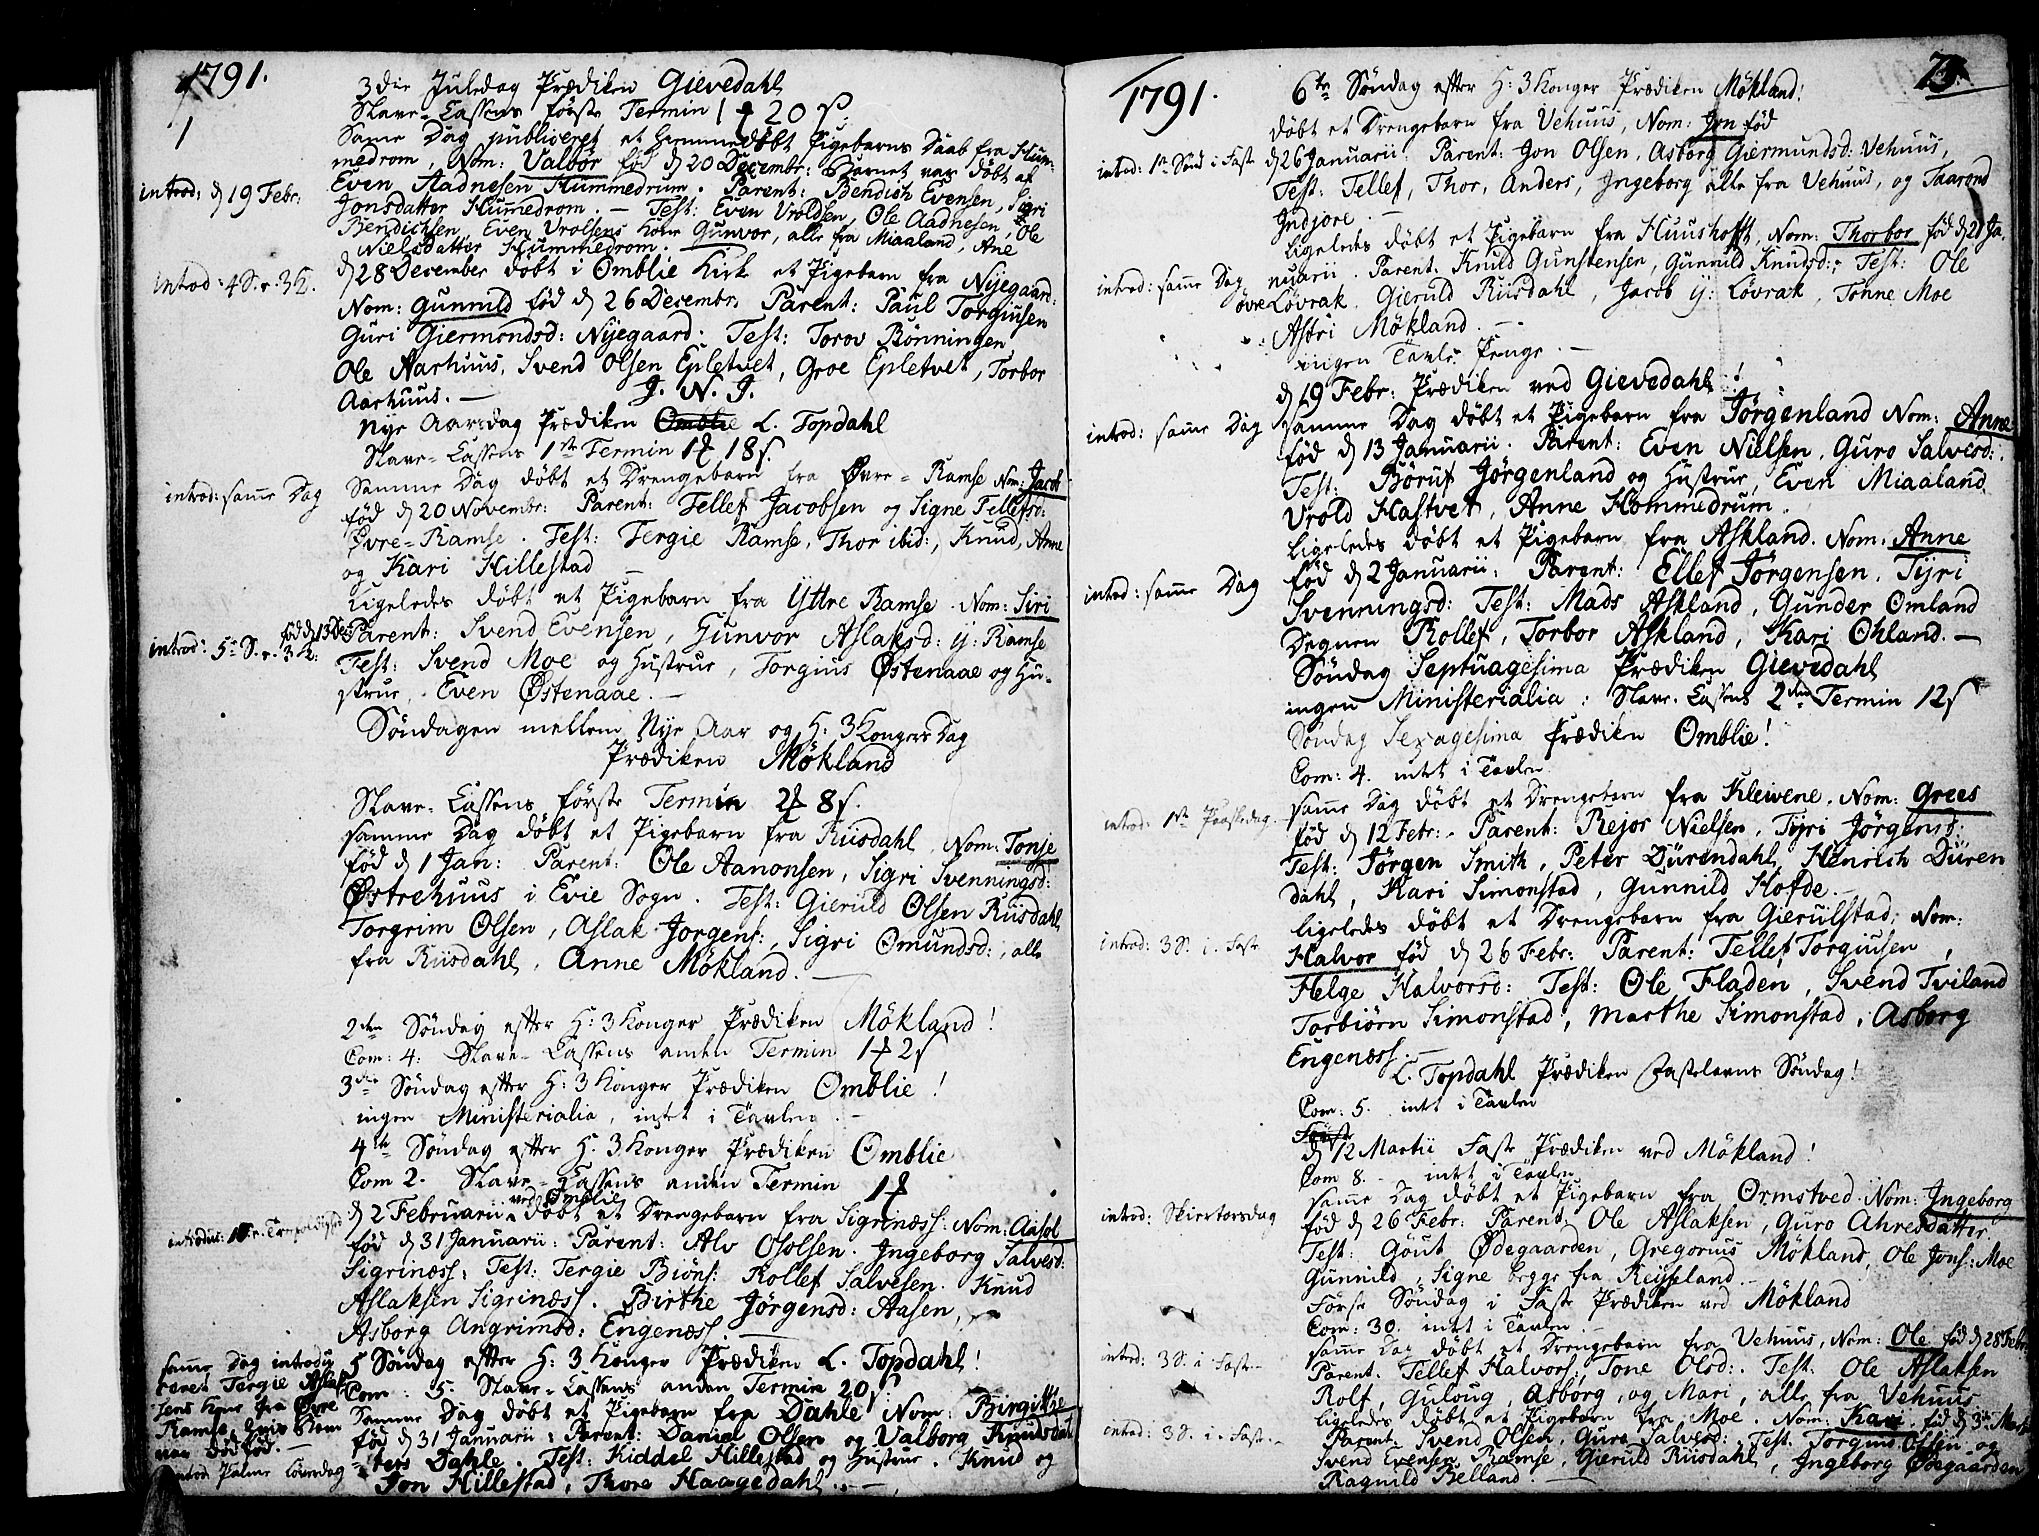 1791.
1
3die Juledag Prædiken Gievedahl
Slave-Cassens første Termin 1 20 s.
Same Dag publiceret et hiemmedøbt Pigebarns Daab fra Hum-
medrom, Nom: Valbor fød d 20 Decembr: Barnet var døbt af
Even Aadnesen Hummedrum. Parent: Bendich Evensen, Sigri
introd: d 19 Febr:
Jonsdatter Humedrom. — Test: Even Vroldsen, Ole Aadnesen, Ole
Bendichsen, Even Vrolsens Kone Gunvor, alle fra Miaaland, Ane
Nielsdatter Hummedrom.
d 28 December døbt i Omblie Kirk et Pigebarn fra Nÿegaard:
introd: 4 S. e. 3 K.
Nom: Gunnild fød d 26 Decembr. Parent: Paul Torgiusen
Guri Giermondsd: Nÿegaard. Test: Torov Bønningen
Ole Aarhuus, Svend Olsen Epletvet, Groe Epletvet, Torbor
Aarhuus. —
J. N. J.
Nye Aarsdag Prædiken Omblie L. Topdahl
Slave-Cassens 1ste Termin 1 18 s.
introd: same Dag
Samme Dag døbt et Drengebarn fra Øvre-Ramse Nom: Jacob
fød d 20 Novembr: Parent: Tellef Jacobsen og Signe Tellefsd:
Øvre-Ramse. Test: Tergie Ramse, Thor ibid:, Knud, Anne
og Kari Hillestad —
Ligeledes døbt et Pigebarn fra Yttre Ramse. Nom: Siri
fød d 13 Dec:
introd: 5te S. e. 3 K:
Parent: Svend Evensen, Gunvor Aslaksd: y: Ramse
Test: Svend Moe og Hustrue, Torgius Østenaae og Hu-
strue, Even Østenaae. —
Søndagen mellem Nye Aar og H: 3 Kongers Dag
Prædiken Møkland
Slave-Cassens første Termin 2 8 s.
samme Dag døbt et Pigebarn fra Riisdahl, Nom: Tonje
fød d 1 Jan: Parent: Ole Aanonsen, Sigri Svenningsd:
Østrehuus i Evie Sogn. Test: Gieruld Olsen Riisdahl
Torgrim Olsen, Aslak Jorgens:, Sigri Omundsd:, alle
fra Riisdahl, Anne Møkland. —
2den Søndag efter H: 3 Konger Prædiken Møkland!
Com: 4. Slave-Cassens anden Termin 1 2 s
3die Søndag efter H: 3 Konger Prædiken Omblie!
ingen Ministerialia, intet i Tavlen. —
4de Søndag efter H. 3 Konger Prædiken Omblie
Com 2. Slave-Cassens anden Termin 1
ved Omblie
d 2 Februarii døbt et Drengebarn fra Sigrinæss: Nom: Aasol
fød d 31 Januarii: Parent: Alv Osolsen. Ingeborg Salvesd:
Sigrinæss: Test: Tergie Biøns: Rollef Salvesen. Knud
Aslaksen Sigrinæss. Birthe Jørgensd: Aasen,
Asborg Angrimsd: Engenæss. —
same Dag introdu
ceret Tergie Aslak
sens Kone fra Øvre
Ramse, hvis Barn
var dødfød. —
5 Søndag efter H: 3 Konger Prædiken L. Topdahl!
Com: 5. Slave-Cassens anden Termin 20 s
Samme Dag døbt et Pigebarn fra Dahle Nom: Birgitte
fød d 31 Januarii: Parent: Daniel Olsen og Valborg Knudsdat-
introd: Palme Løverdag
ters Dahle. Test: Kiddel Hillestad og Hustrue. Knud og
Jon Hillestad, Thore Haagedahl. —
1791.
6te Søndag efter H: 3 Konger Prædiken Møkland!
døbt et Drengebarn fra Vehuus, Nom: Jon fød
introd: 1te Sønd i Fast
d 26 Januarii. Parent: Jon Olsen, Asborg Giermundsd: Vehuus,
Test: Tellef, Thor, Anders, Ingeborg alle fra Vehuus, og Taarond
Indjore. —
Ligeledes døbt et Pigebarn fra Huushofft, Nom: Thorbor fød d 21 Ja-
introd: same Dag
nuarii. Parent: Knud Gunstensen, Gunnild Knudsd: Test: Ole
øvre Løvrak. Gieruld Riisdahl, Jacob y: Løvrak, Tonne Moe
Astri Møkland. —
ingen Tavle Penge. —
d 19 Febr: Prædiken ved Gievedahl!
introd: same Dag
samme Dag døbt et Pigebarn fra Jørgenland Nom: Anne
fød d 13 Januarii. Parent: Even Nielsen, Guro Salvesd:.
Test: Børuf Jørgenland og Hustrue, Even Miaaland
Vrold Hastvet, Anne Hommedrum.
Ligeledes døbt et Pigebarn fra Askland. Nom: Anne
introd: same Dag
fød d 2 Januarii. Parent: Ellef Jørgensen, Tÿri
Svenningsd: Test: Mads Askland, Gunder Omland
Degnen Rollef, Torbor Askland, Kari Ohland. —
Søndag Septuagesima Prædiken Gievedahl
ingen Ministerialia: Slave-Cassens 2den Termin 12 s
Søndag Sexagesima Prædiken Omblie!
Com: 4. intet i Tavlen
introd: 1te Paaskedag
same Dag døbt et Drengebarn fra Kleivene. Nom: Grees
fød d 12 Febr: Parent: Rejor Nielsen, Tÿri Jørgensd:
Test: Jørgen Smith, Peter Dürendahl, Henrich Düren
dahl, Kari Simonstad, Gunnild Hofde. —
ligeledes døbt et Drengebarn fra Gierulstad, Nom:
introd: 3 S. i Faste
Halvor fød d 26 Febr: Parent: Tellef Torgiusen,
Helge Halvorsd: Test: Ole Fladen, Svend Tviland
Torbiørn Simonstad, Marthe Simonstad, Asborg
Engenæss. —
L. Topdahl Prædiken Fastelavns Søndag!
Com: 5. intet i Tavlen
Første
d 12 Martii Faste Prædiken ved Møkland!
Com 8. - intet i Tavlen
introd: Skiertorsdag
same Dag døbt et Pigebarn fra Ormstved Nom: Ingeborg
fød d 26 Febr: Parent: Ole Aslaksen, Guro Ahresdatter
Test: Gout Ødegaarden, Gregorius Møkland, Ole Jons: Moe
Gunnild, Signe begge fra Reiseland. —
Første Søndag i Faste Prædiken ved Møkland
Com: 30. intet i Tavlen
introd: 3 S. i Fast. —
same Dag døbt et Drengebarn fra Vehuus, Nom: Ole fød d 28 Febr:
Parent: Tellef Halvors:, Tone Olsd:. Test: Ole Aslaksen
Rolf, Guloug, Asborg, og Mari, alle fra Vehuus
introd: 3 S. i. Fast. —
ligeledes døbt et Pigebarn fra Moe. Nom: Kari fød d 3 Marti
Parent. Svend Olsen, Guro Salvesd: Test. Torgius Olsen og
Svend Evensen Ramse, Gieruld Riisdahl, Ingeborg Ødegaarden
Ragnild Belland. —